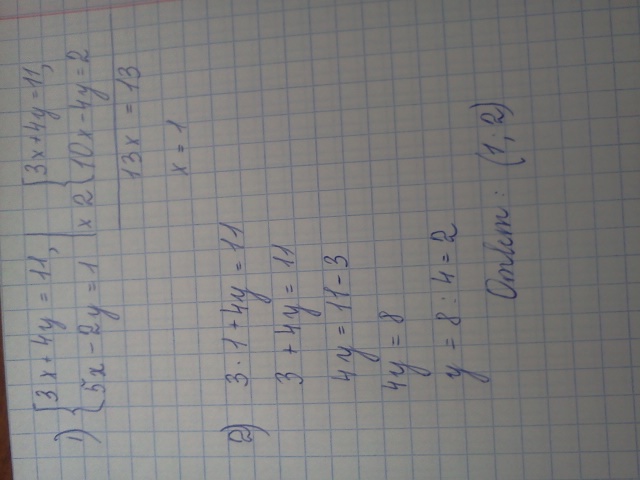 1) { 3x + 4y = 11, | { 3x + 4y = 11,
{ 5x - 2y = 1 | x 2 { 10x - 4y = 2
13x = 13
x = 1
2) 3 · 1 + 4y = 11
3 + 4y = 11
4y = 11 - 3
4y = 8
y = 8 : 4 = 2
Ответ: (1; 2)